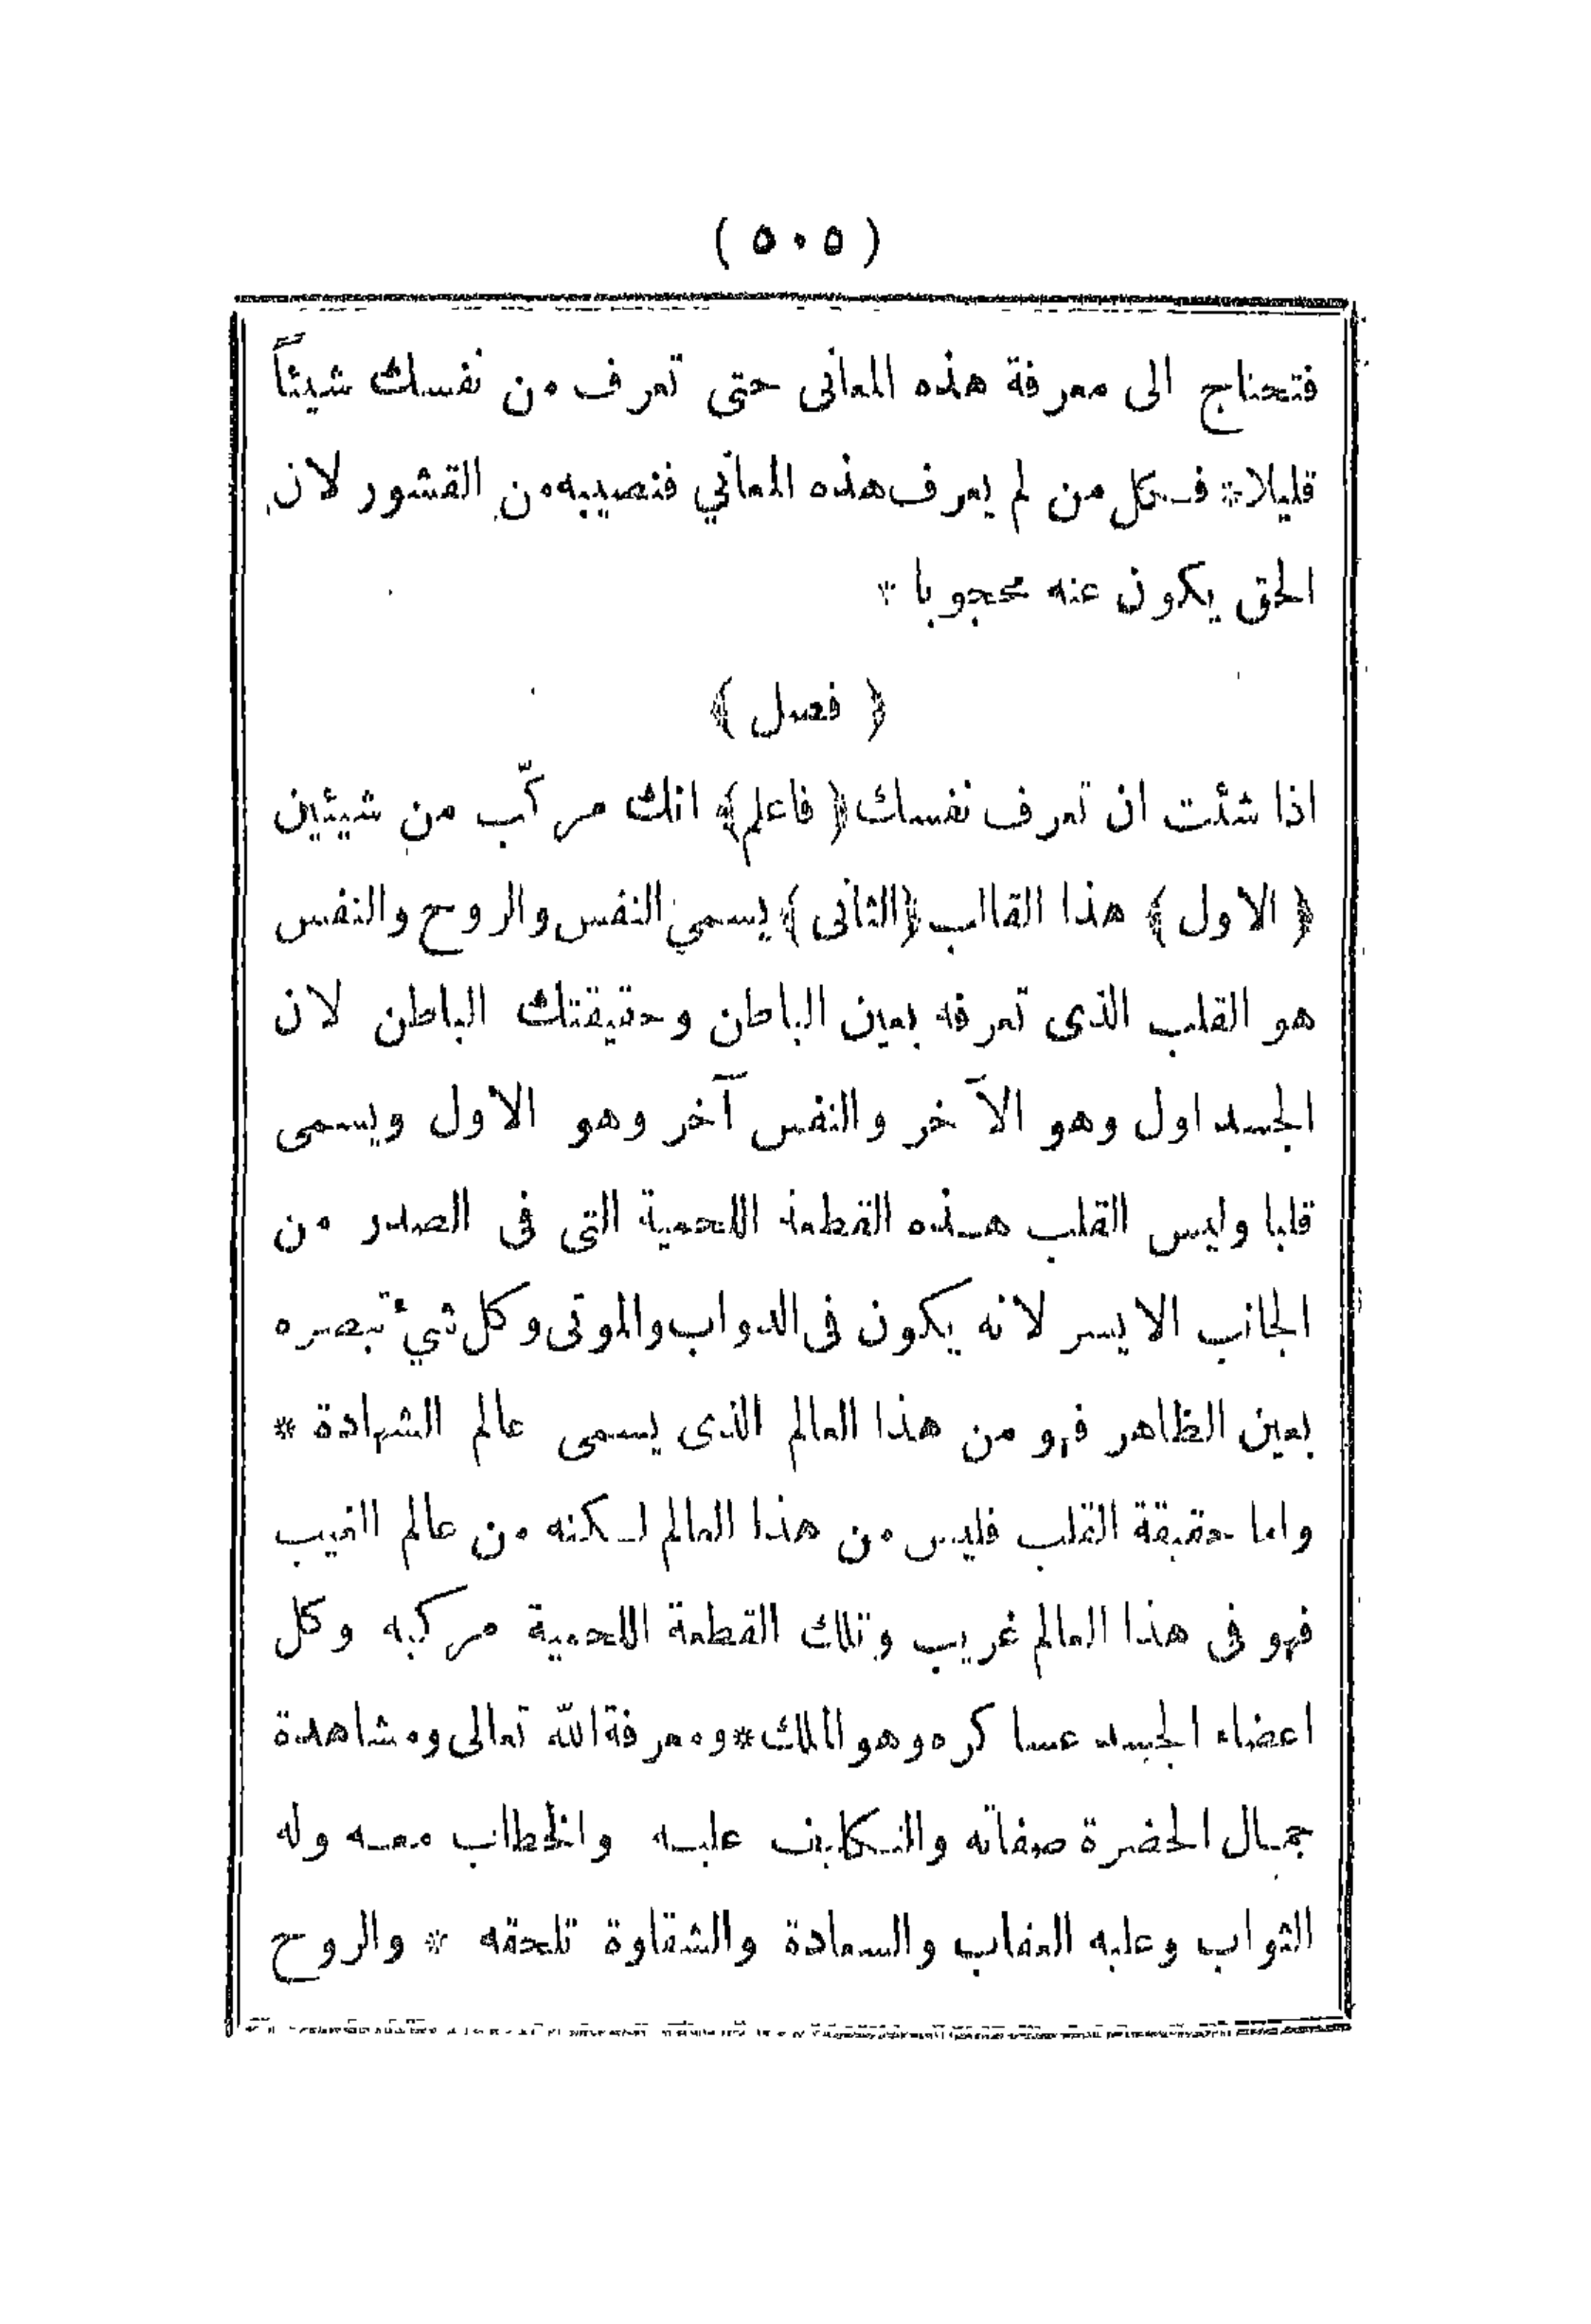 ( ٥٠٥ )
فتحتاج الى معرفة هذه المعانى حتى تعرف من نفسك شيئاً
قليلا * فكل من لم يعرف هذه المعاني فنصيبه من القشور لان
الحق يكون عنه محجوبا *
﴿ فصل ﴾
اذا شئت ان تعرف نفسك ﴿ فاعلم ﴾ انك مركّب من شيئين
﴿ الاول ﴾ هذا القالب ﴿ الثانى ﴾ يسمي النفس والروح والنفس
هو القلب الذى تعرفه بعين الباطن وحقيقتك الباطن لان
الجسد اول وهو الآخر والنفس آخر وهو الاول ويسمى
قلبا وليس القلب هذه القطعة اللحمية التى فى الصدر من
الجانب الايسر لانه يكون فى الدواب والموتى وكل شيء تبصره
بعين الظاهر فهو من هذا العالم الذى يسمى عالم الشهادة *
واما حقيقة القلب فليس من هذا العالم لكنه من عالم الغيب
فهو فى هذا العالم غريب وتلك القطعة اللحمية مركبه وكل
اعضاء الجسد عساكره وهو الملك * ومعرفة الله تعالى ومشاهدة
جمال الحضرة صفاته والتكليف عليه والخطاب معه وله
الثواب وعليه العقاب والسعادة والشقاوة تلحقه * والروح